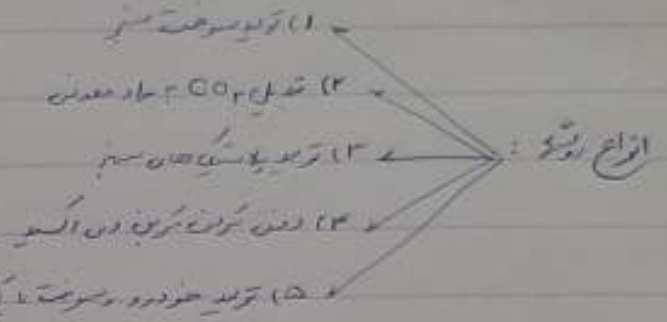 انواع روشها :
۱) تولید سوخت سبز
۲) تبدیل CO₂ به مواد معدنی
۳) تولید پلاستیک های سبز
۴) دفن کردن کربن دی اکسید
۵) تولید خودرو و سوخت